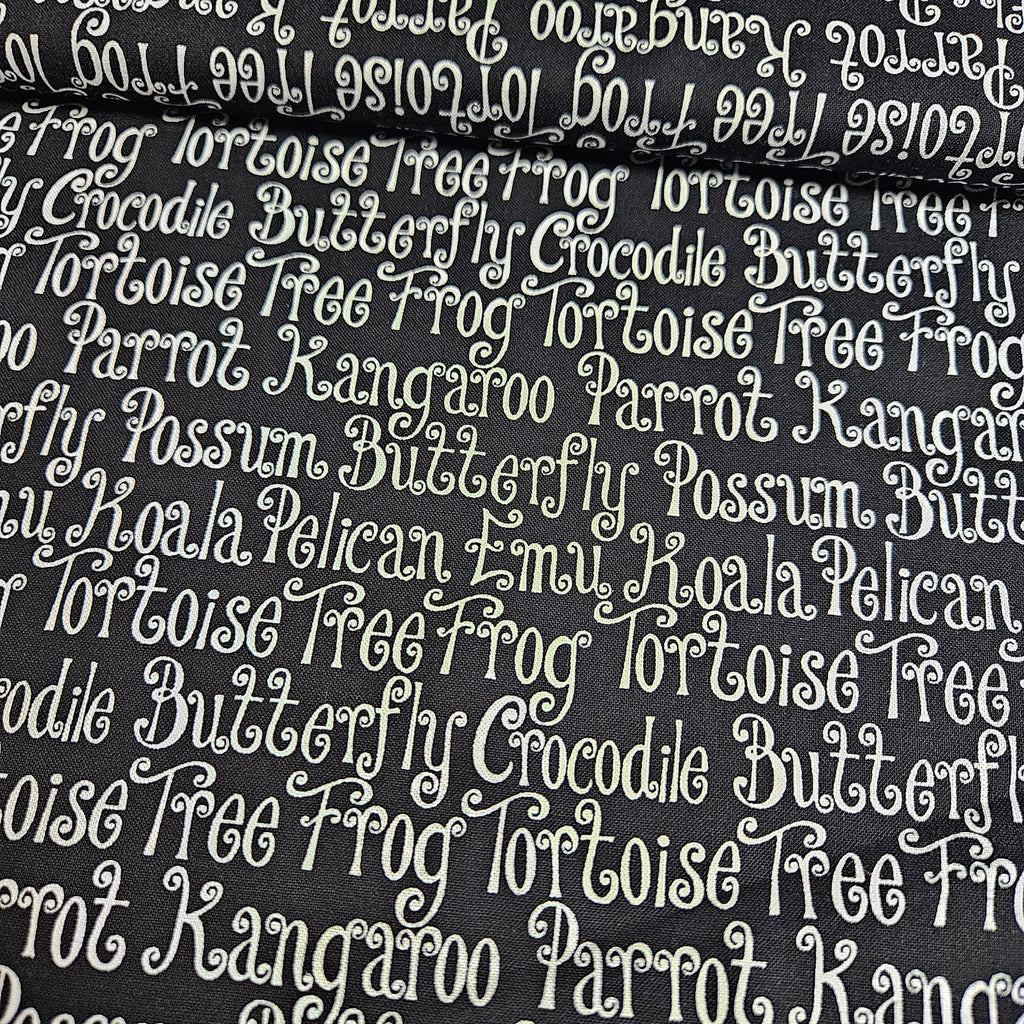 Parrot Kangaroo Parrot
Tortoise Tree Frog Tortoise Tree Frog
Frog Tortoise Tree Frog Tortoise Tree
Crocodile Butterfly Crocodile Butterfly
Tortoise Tree Frog Tortoise Tree Frog
Parrot Kangaroo Parrot Kangar
rfly Possum Butterfly Possum Butt
mu Koala Pelican Emu Koala Pelican
Tortoise Tree Frog Tortoise Tree
codile Butterfly Crocodile Butterfl
toise Tree Frog Tortoise Tree Fro
rrot Kangaroo Parrot Kang